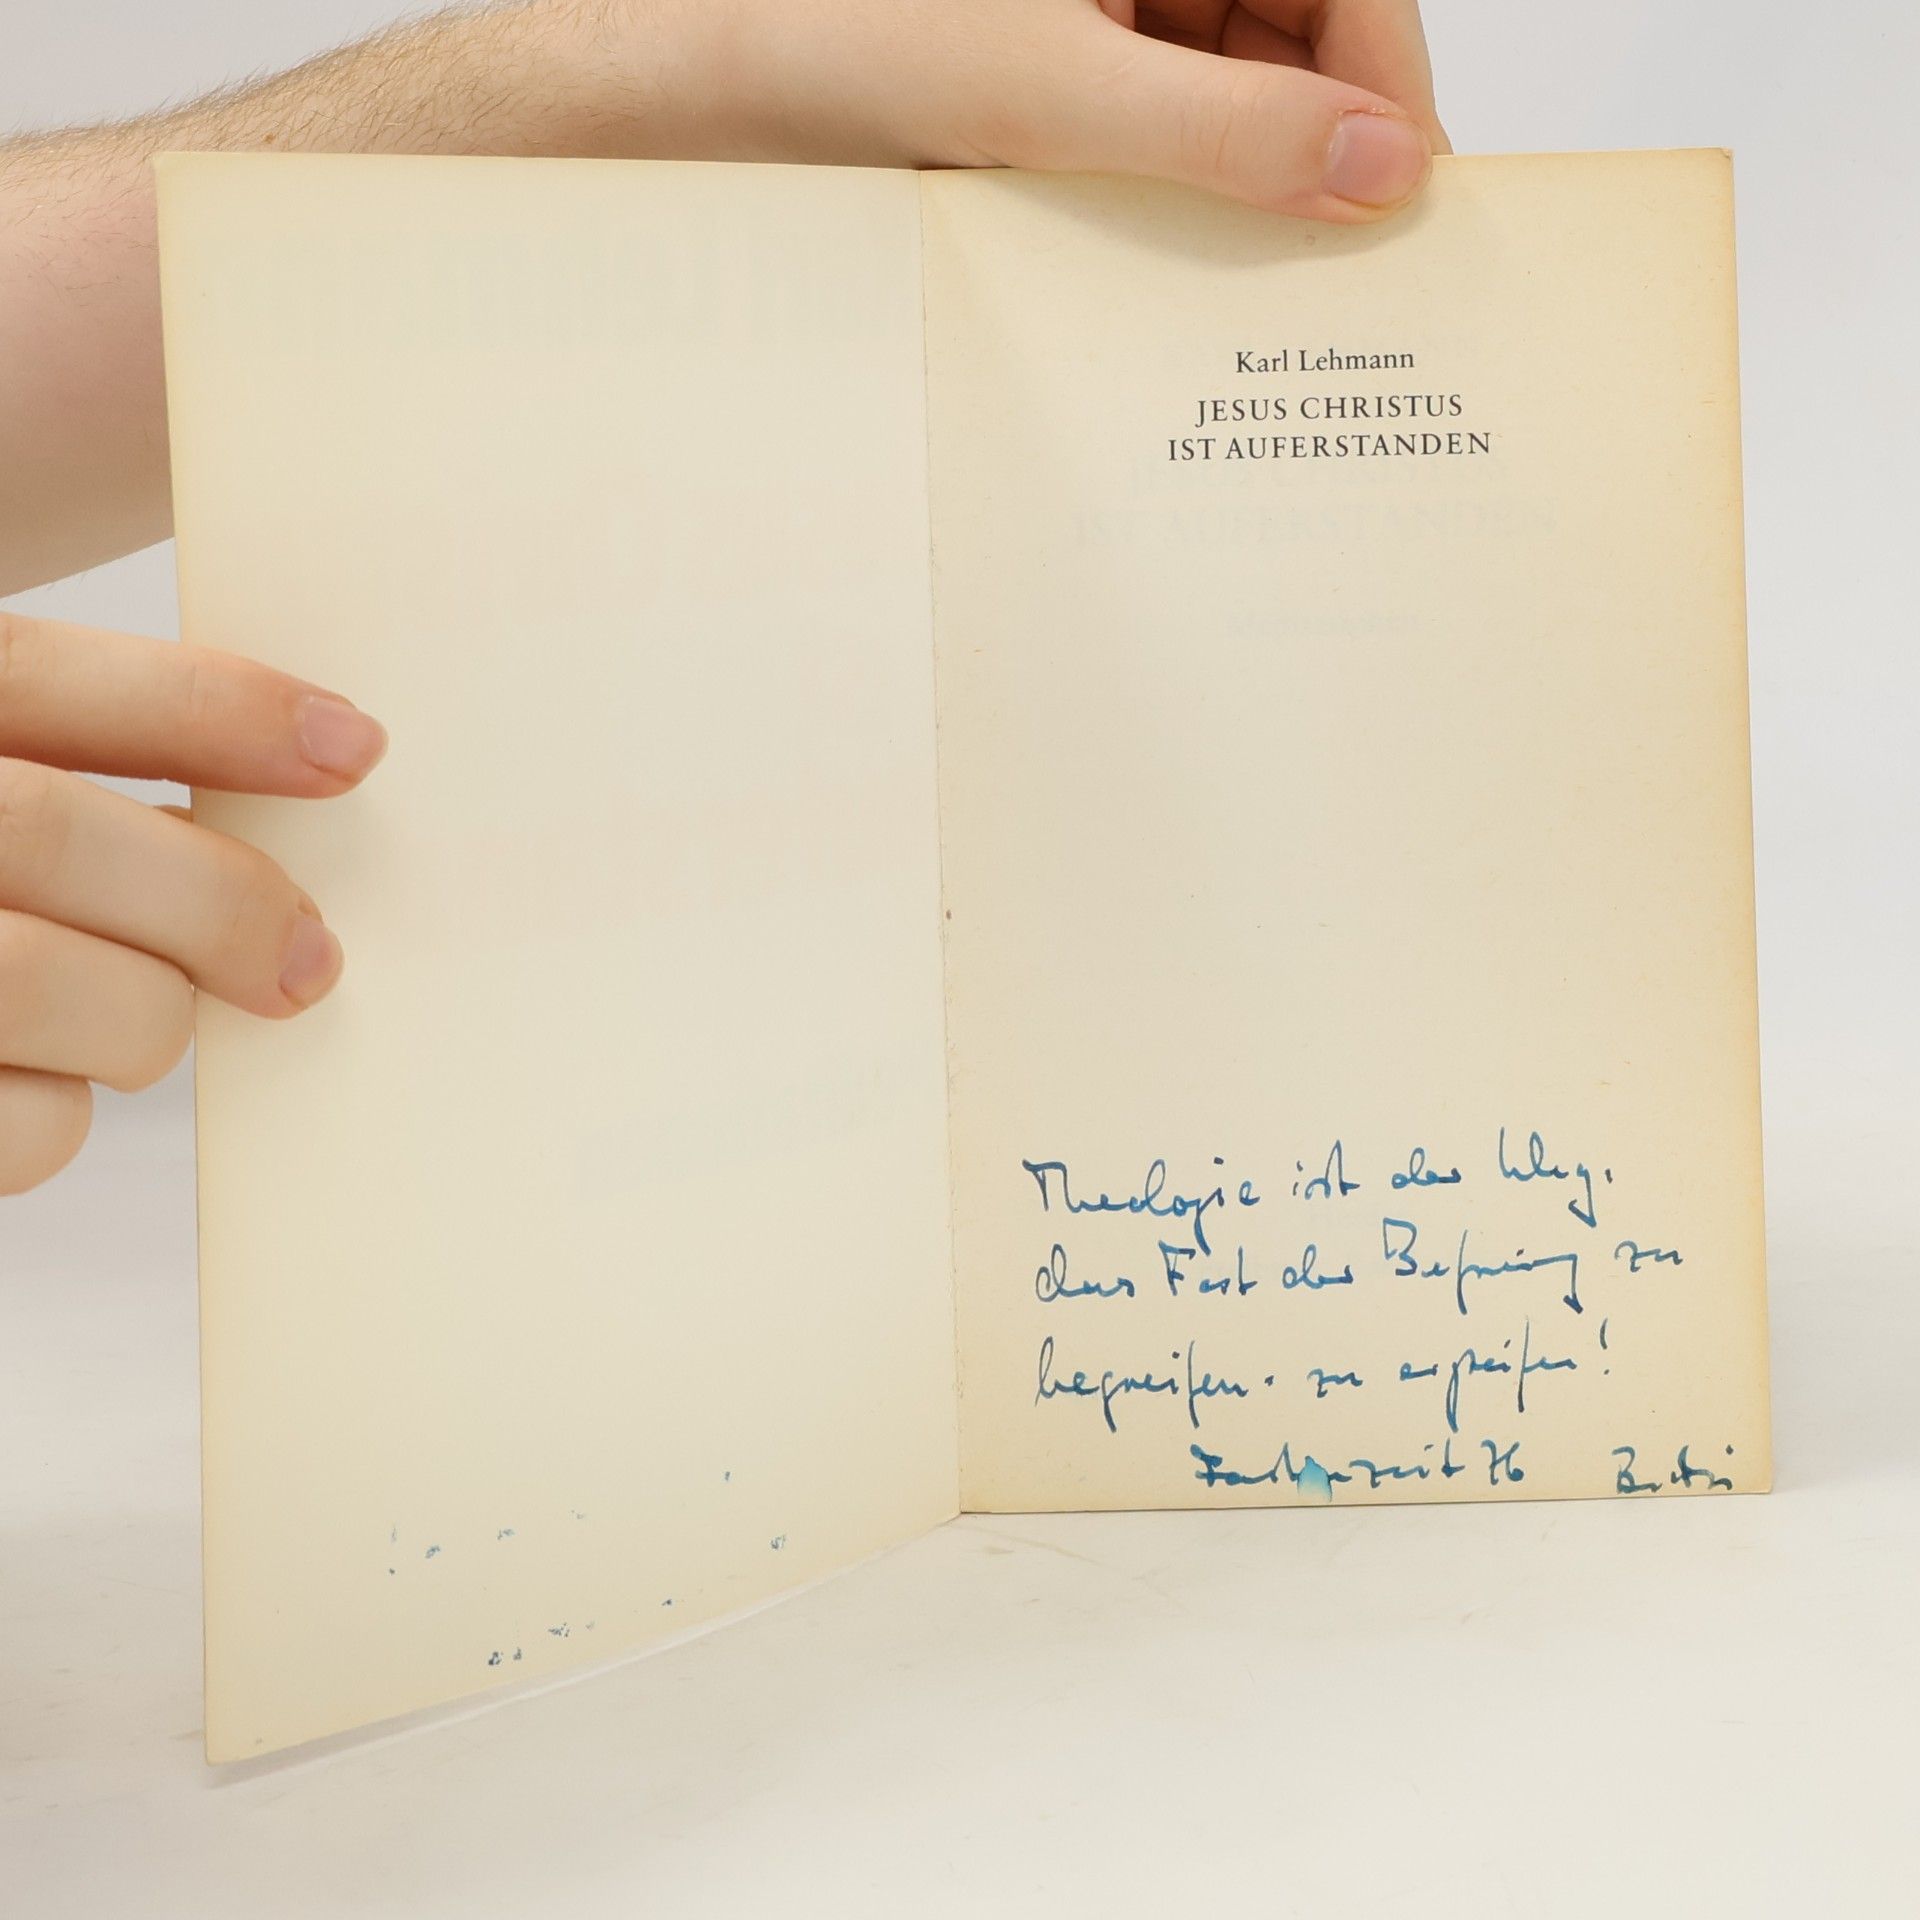 Karl Lehmann
JESUS CHRISTUS
IST AUFERSTANDEN
Theologie ist der Weg,
das Fest der Befreiung zu
begreifen - zu ergreifen!
Fastenzeit 76